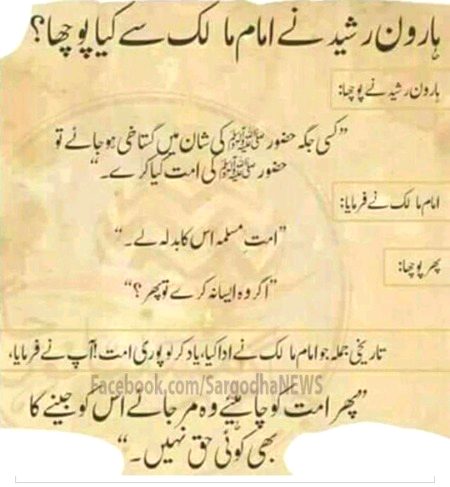 ہارون رشید نے امام مالک سے کیا پوچھا؟
ہارون رشید نے پوچھا:
”کسی جگہ حضور ﷺ کی شان میں گستاخی ہو جائے تو
حضور ﷺ کی امت کیا کرے۔“
امام مالک نے فرمایا:
”امتِ مسلمہ اس کا بدلہ لے۔“
پھر پوچھا:
”اگر وہ ایسا نہ کرے تو پھر؟“
تاریخی جملہ جو امام مالک نے ادا کیا، یاد کر لو پوری امت! آپ نے فرمایا،
Facebook.com/SargodhaNEWS
”پھر امت کو چاہیئے وہ مر جائے اس کو جینے کا
بھی کوئی حق نہیں۔“